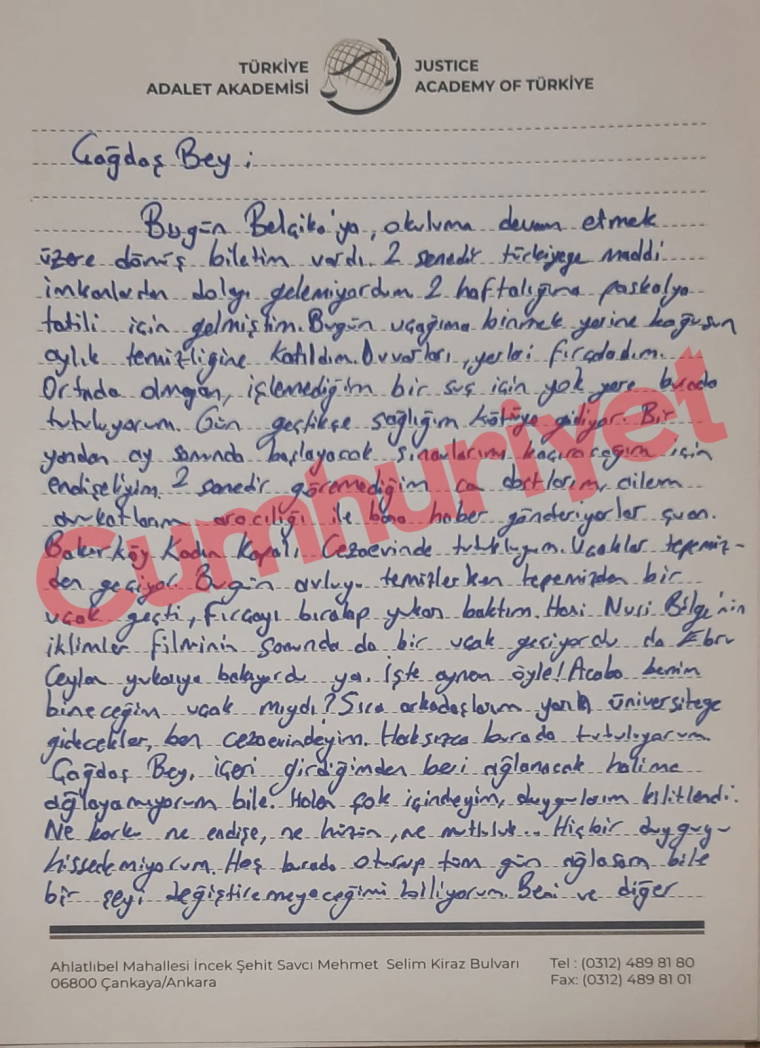 TÜRKİYE
ADALET AKADEMİSİ
JUSTICE
ACADEMY OF TÜRKİYE
Çağdaş Bey;
Bugün Belçika'ya, okuluma devam etmek
üzere dönüş biletim vardı. 2 senedir türkiyeye maddi
imkanlardan dolayı gelemiyordum 2 haftalığına paskalya
tatili için gelmiştim. Bugün uçağıma binmek yerine koğuşun
aylık temizliğine katıldım. Duvarları, yerleri fırçaladım.
Ortada olmayan, işlemediğim bir suç için yok yere burada
tutuluyorum. Gün geçtikçe sağlığım kötüye gidiyor. Bir
yandan ay sonunda başlayacak sınavlarımı kaçıracağım için
endişeliyim. 2 senedir göremediğim can dostlarım, ailem
avukatlarım aracılığı ile bana haber gönderiyorlar şuan.
Bakırköy Kadın Kapalı Cezaevinde tutukluyum. Uçaklar tepemiz-
den geçiyor. Bugün avluyu temizlerken tepemizden bir
uçak geçti, fırçayı bırakıp yukarı baktım. Hani Nuri Bilge'nin
iklimler filminin sonunda da bir uçak geçiyordu da Ebru
Ceylan yukarıya bakıyordu ya. İşte aynen öyle! Acaba benim
bineceğim uçak mıydı? Sıra arkadaşlarım yarın üniversiteye
gidecekler, ben cezaevindeyim. Haksızca burada tutuluyorum.
Çağdaş Bey, içeri girdiğimden beri ağlanacak halime
ağlayamıyorum bile. Halen şok içindeyim, duygularım kilitlendi.
Ne korku ne endişe, ne hüzün, ne mutluluk... Hiçbir duyguyu
hissedemiyorum. Hoş burada oturup tüm gün ağlasam bile
bir şeyi değiştiremeyeceğimi biliyorum. Beni ve diğer
Cumhuriyet
Ahlatlıbel Mahallesi İncek Şehit Savcı Mehmet Selim Kiraz Bulvarı
06800 Çankaya/Ankara
Tel : (0312) 489 81 80
Fax: (0312) 489 81 01